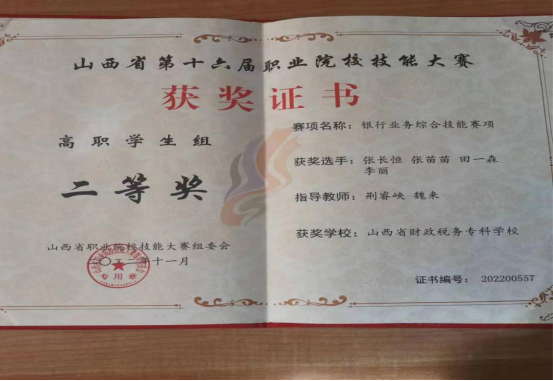 山西省第十六届职业院校技能大赛
获奖证书
高职学生组
二等奖
山西省职业院校技能大赛组委会
二〇二二年十一月
专用章
赛项名称：银行业务综合技能赛项
获奖选手：张长恒 张苗苗 田一森
李丽
指导教师：荆睿峡 魏来
获奖学校：山西省财政税务专科学校
证书编号：202200557